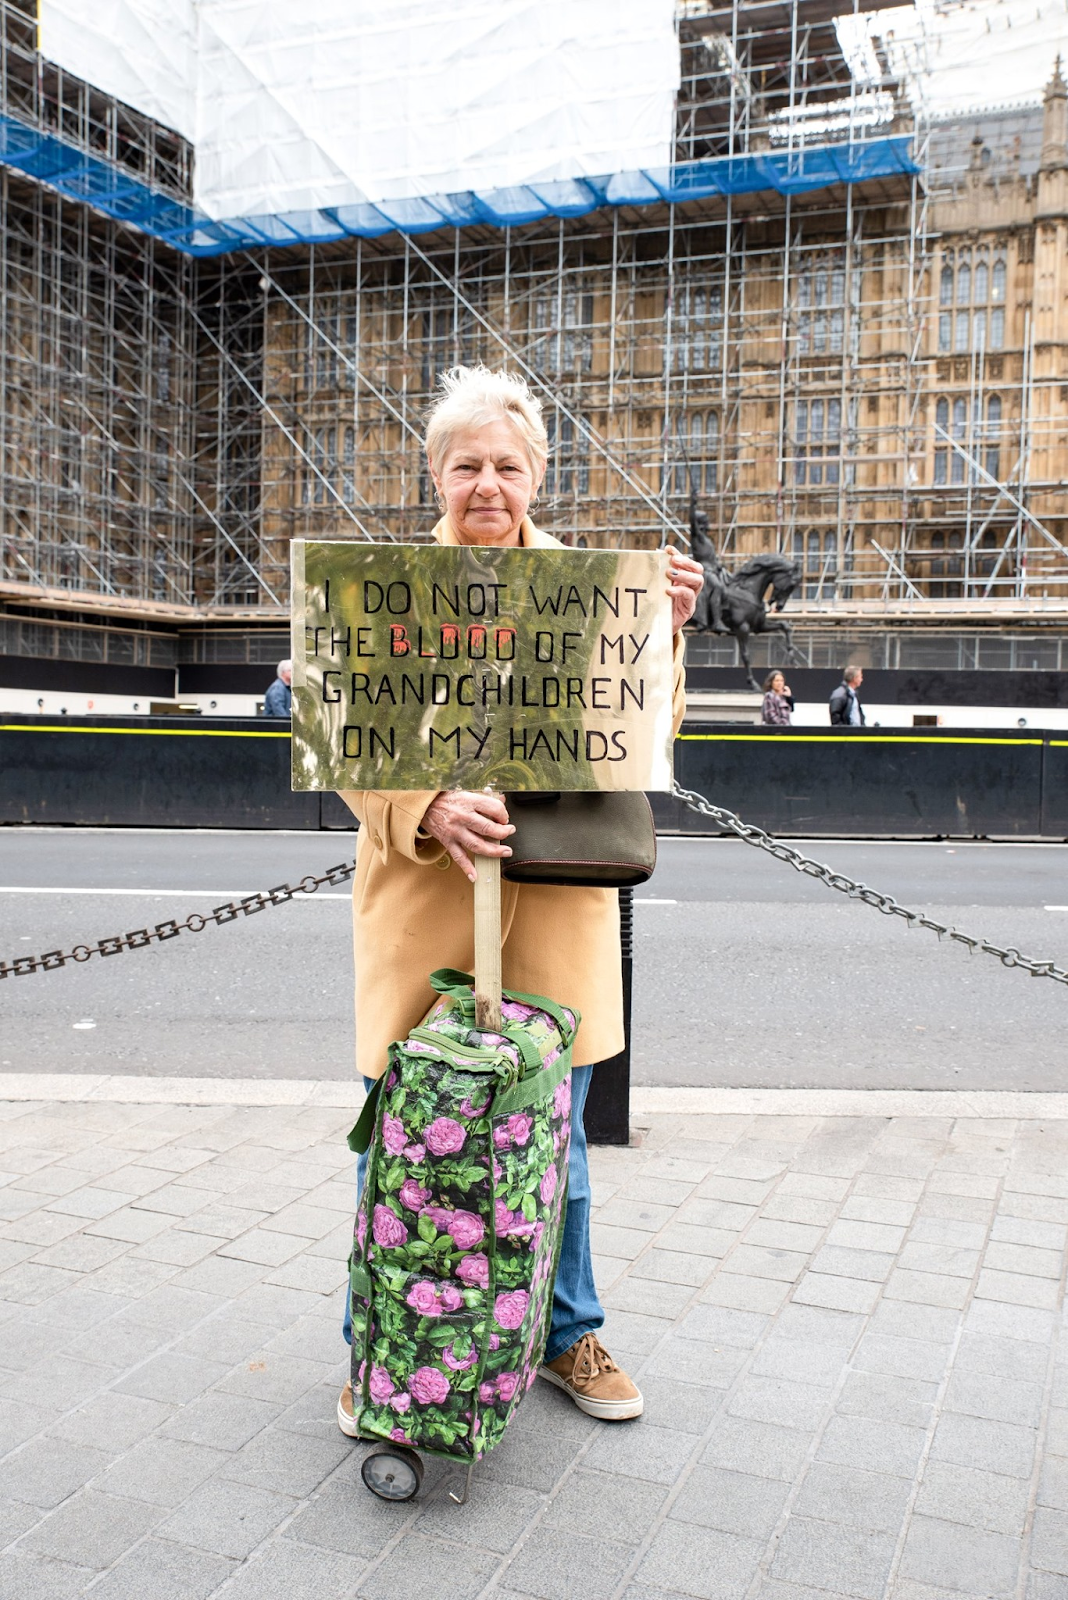 I DO NOT WANT
THE BLOOD OF MY
GRANDCHILDREN
ON MY HANDS